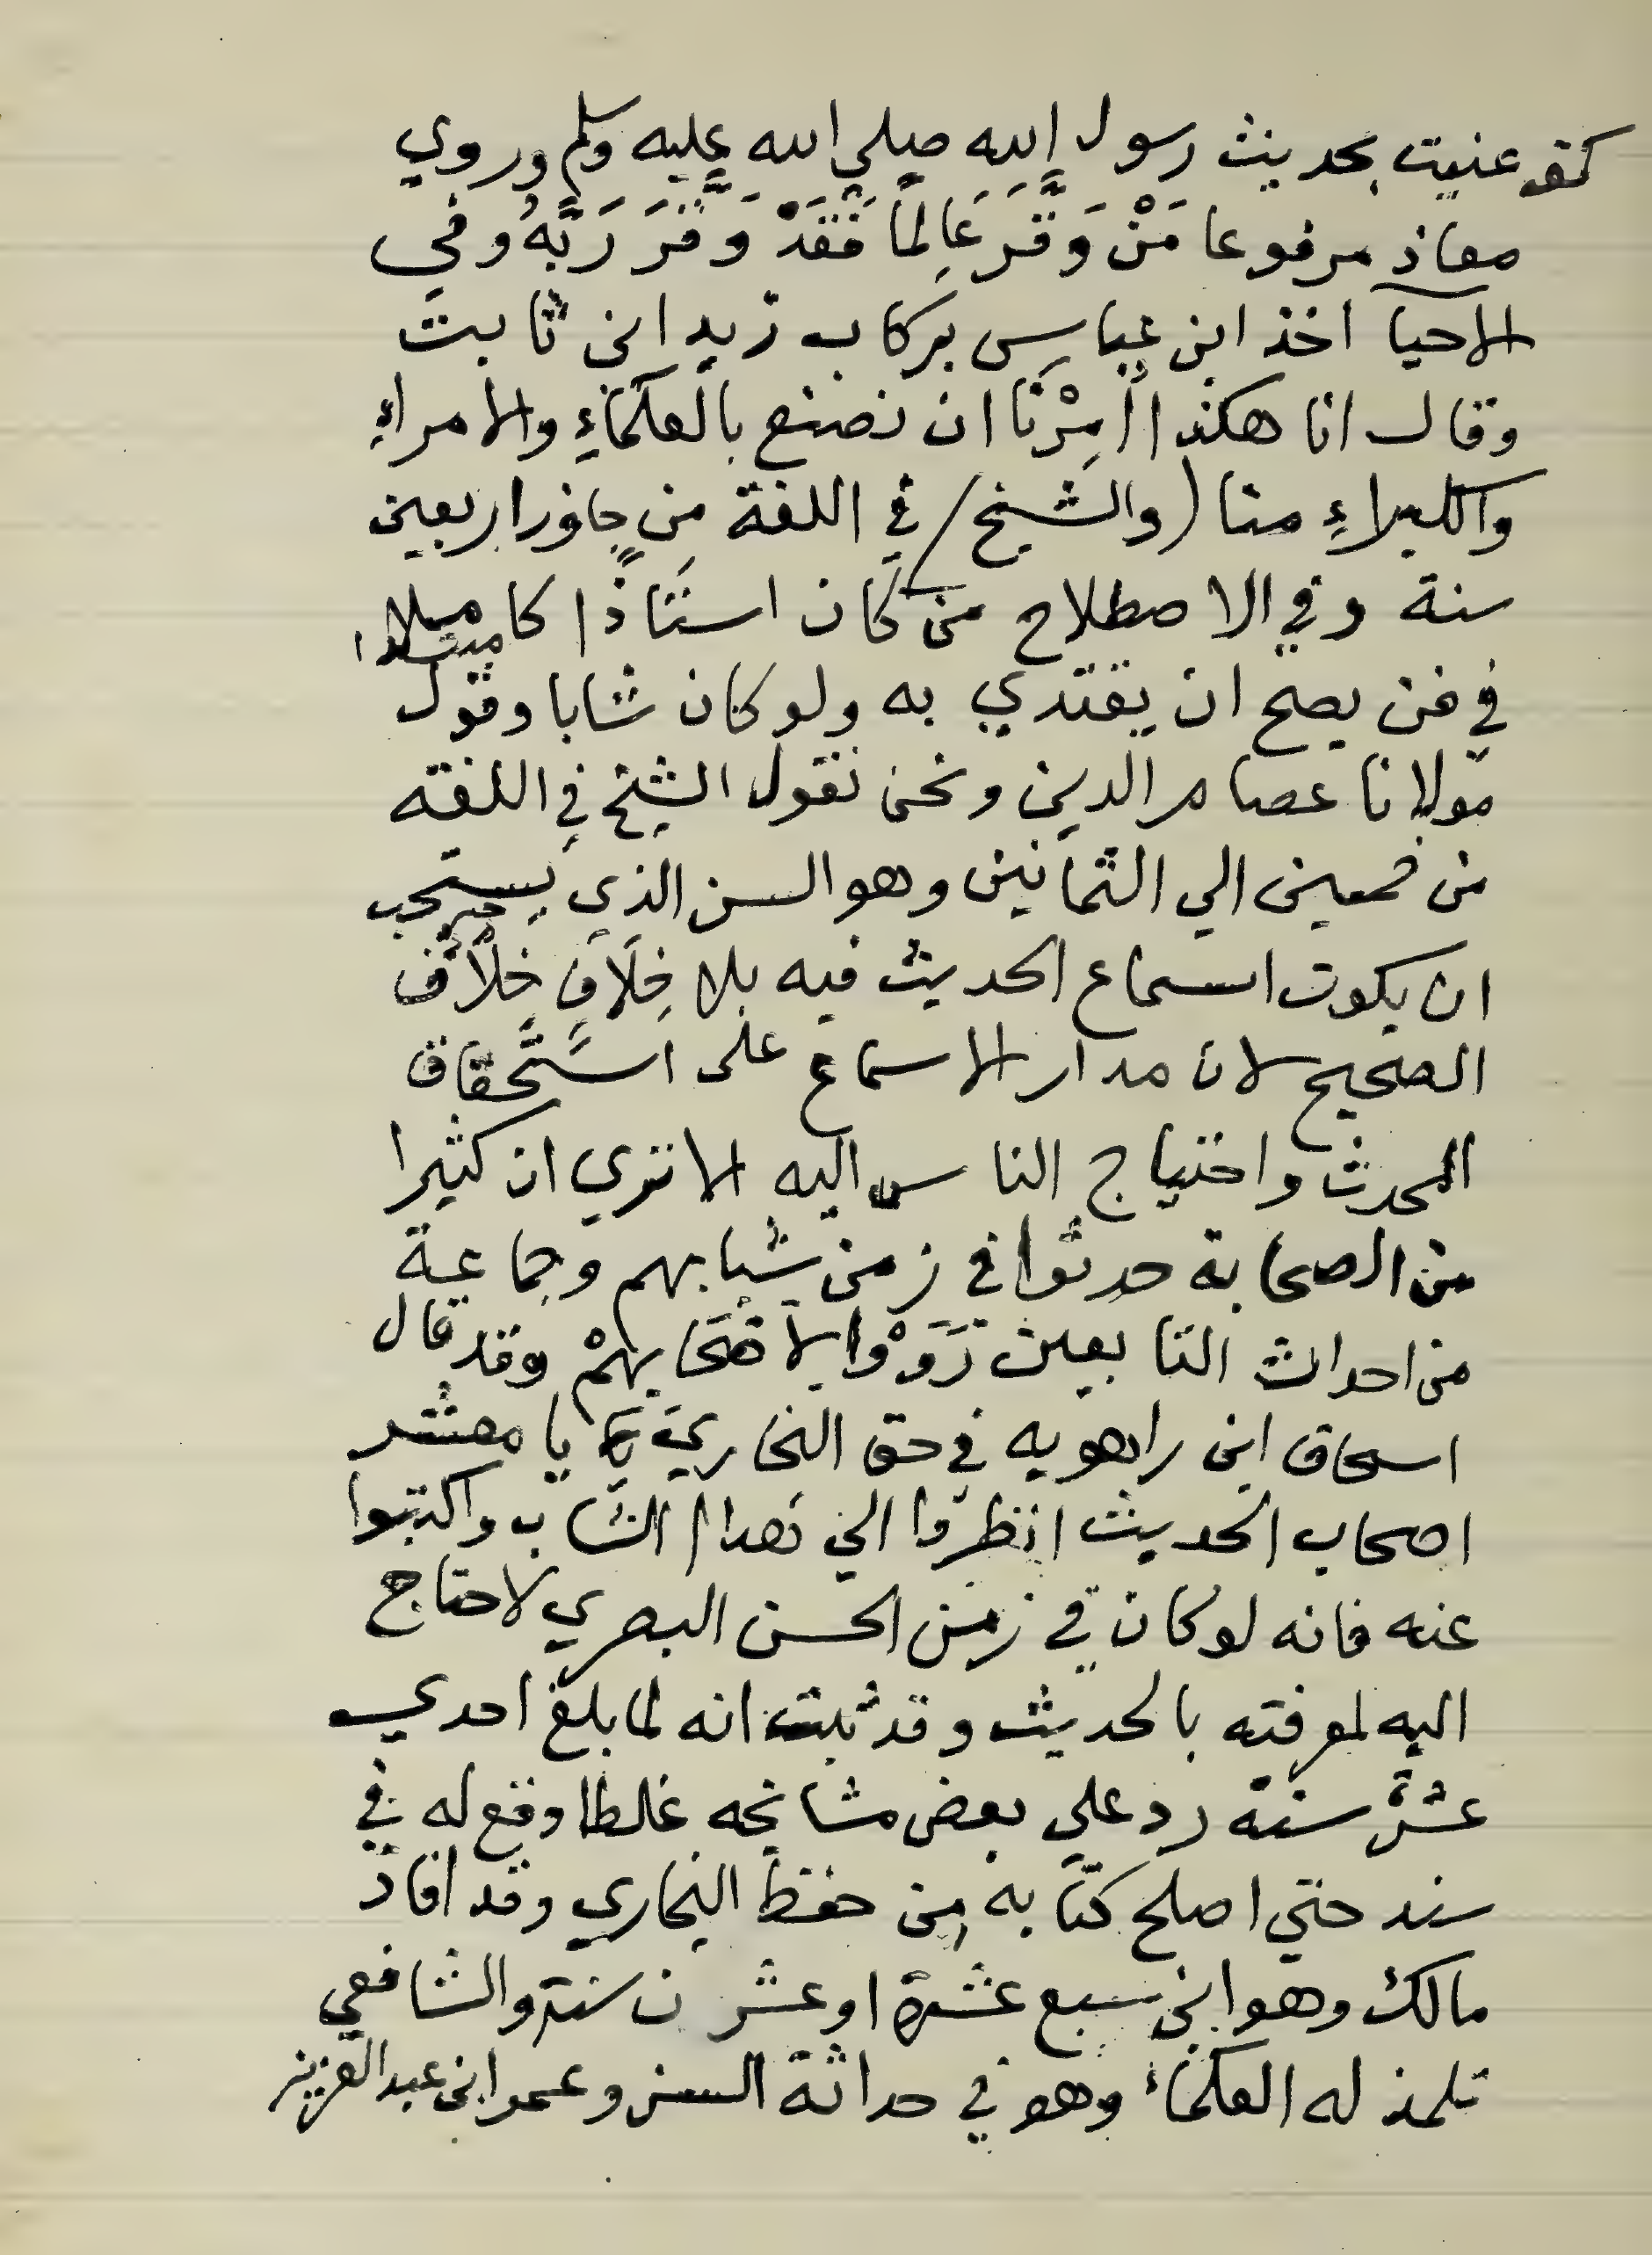 عنيت بحديث رسول الله صلي الله عليه وسلم وروي
معاذ مرفوعا مَنْ وَقَّرَ عَالِمًا فَقَدْ وَقَّرَ رَبَّهُ وفي
الاحيا اخذ ابن عباس بركاب زيد ابن ثابت
وقال انا هكذا اُمِرْنَا ان نصنع بالعلماءِ والامراءِ
والكبراءِ منا (والشيخ) في اللغة من جاوز اربعين
سنة وفي الاصطلاح من كان استاذا كاملا
في فن يصح ان يقتدي به ولو كان شابا وقول
مولانا عصام الدين ونحن نقول الشيخ في اللغة
من خمسين الي الثمانين وهو السن الذي يستحب
ان يكون اسماع الحديث فيه بلا خِلَافٍ خِلَافُ
الصحيح لان مدار الاسماع على استحقاق
المحدث واحتياج الناس اليه الا تري ان كثيرا
من الصحابة حدثوا في زمن شبابهم وجماعة
من احداث التابعين رَوَوْا لِاَصْحَابِهِمْ وقد قال
اسحاق ابن راهويه في حق البخاري يا معشر
اصحاب الحديث انظروا الي هذا الشاب واكتبوا
عنه فانه لو كان في زمن الحسن البصري لاحتاج
اليه لمعرفته بالحديث وقد ثبت انه لما بلغ احدي
عشرة سنة رد علي بعض مشائخه غلطا وقع له في
سند حتي اصلح كتابه من حفظ البخاري وقد افاد
مالك وهو ابن سبع عشرة او عشرن سنة والشافعي
تلمذ له العلماءُ وهو في حداثة السن وعمر ابن عبد العزيز